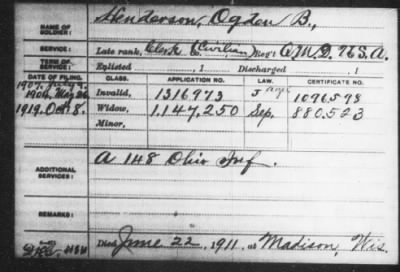 NAME OF SOLDIER: Henderson, Ogden B.,
SERVICE: Late rank, Clerk (Civilian) Reg't Q.M.D. U.S.A.
TERM OF SERVICE: Enlisted , 1 Discharged , 1
DATE OF FILING. CLASS. APPLICATION NO. LAW. CERTIFICATE NO.
1904, May 26 Invalid, 1316973 1096598
1919. Oct 8. Widow, 1.147.250 Sep. 880.523
Minor,
ADDITIONAL SERVICES: A 148 Ohio Inf.
REMARKS:
Died June 22, 1911, at Madison, Wis.